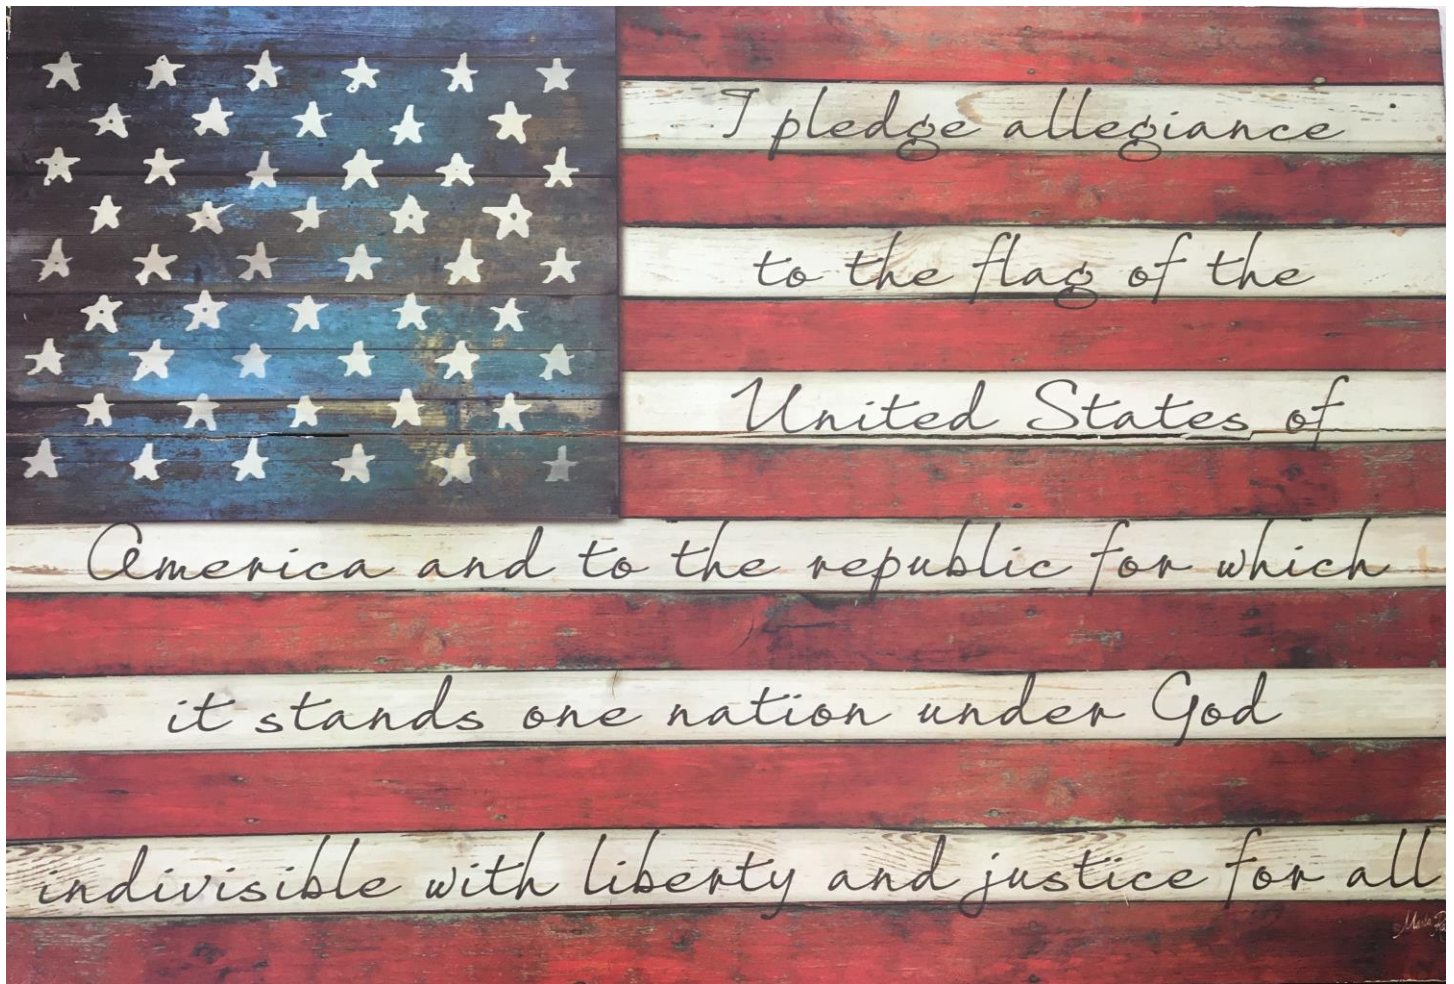 I pledge allegiance
to the flag of the
United States of
America and to the republic for which
it stands one nation under God
indivisible with liberty and justice for all